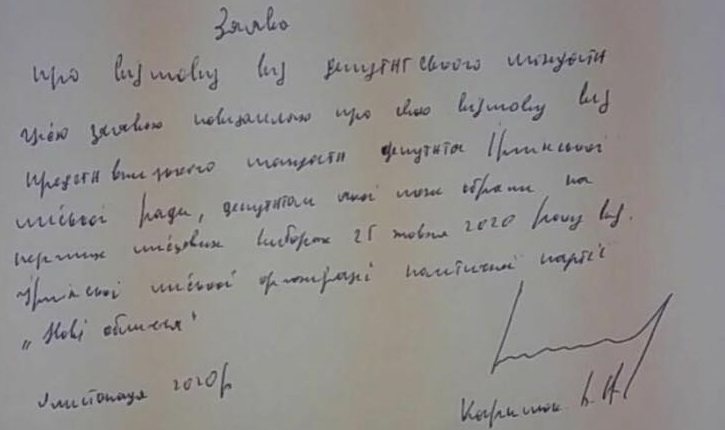 Заява
про відмову від депутатського мандата
Цією заявою повідомляю про свою відмову від
представницького мандата депутата Ірпінської
міської ради, депутатом якої мене обрали на
перших місцевих виборах 25 жовтня 2020 року від
Ірпінської міської організації політичної партії
„Нові обличчя"
листопада 2020р
В. А.